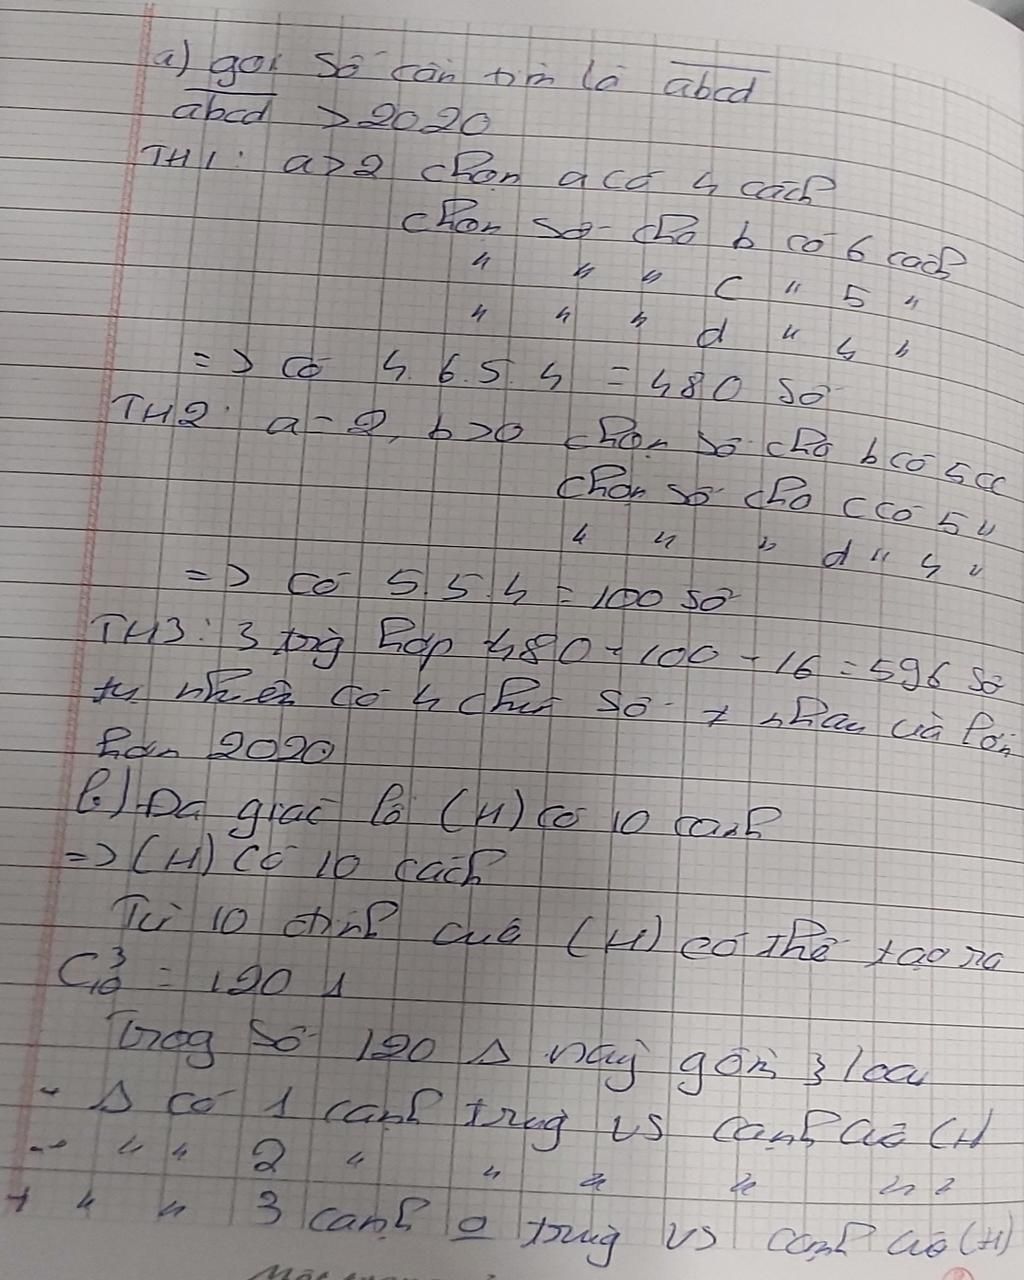 a) gọi số cần tìm là abcd
abcd > 2020
TH1: a>2 chọn a có 4 cách
chọn số cho b có 6 cách
" " " c " 5 "
" " " d " 4 "
=> có 4.6.5.4 = 480 số
TH2: a=2, b>0 chọn số cho b có 5cc
chọn số cho c có 5 "
" " " d " 4 "
=> có 5.5.4 = 100 số
TH3: 3 trg hợp 480+100+16=596 số
tự nhiên có 4 chữ số ≠ nhau và lớn
hơn 2020
b.) Đa giác lồi (H) có 10 cạnh
=> (H) có 10 cách
Từ 10 đỉnh của (H) có thể tạo ra
C₁₀³ = 120 Δ
Trog số 120 Δ này gồm 3 loại
- Δ có 1 cạnh trug vs cạnh của (H
- " " 2 " " " " " "
+ " " 3 cạnh o trug vs cạnh của (H)